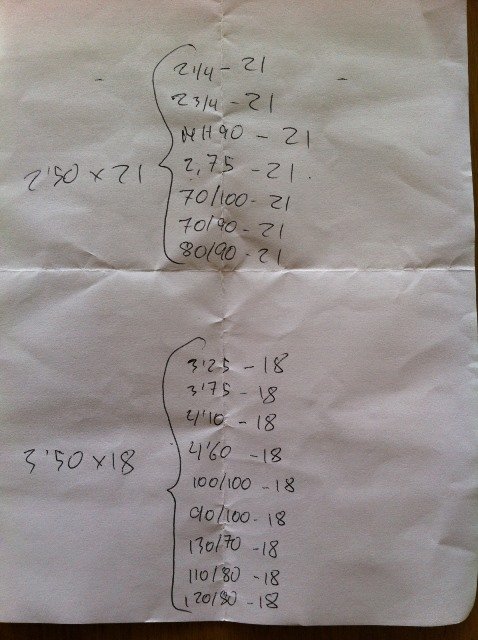 2 1/4 - 21
2 3/4 - 21
MH90 - 21
2,75 - 21
2'50 x 21
70/100 - 21
70/90 - 21
80/90 - 21
3'25 - 18
3'75 - 18
4'10 - 18
4'60 - 18
3'50 x 18
100/100 - 18
90/100 - 18
130/70 - 18
110/80 - 18
120/80 - 18